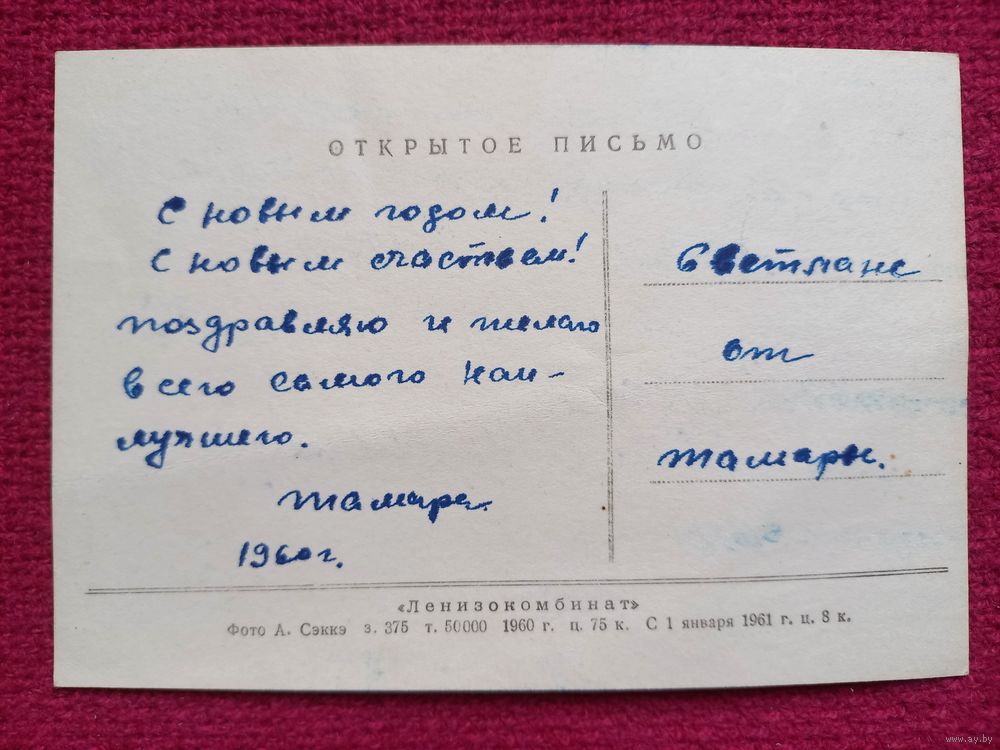 ОТКРЫТОЕ ПИСЬМО
С новым годом!
С новым счастьем!
поздравляю и желаю
всего самого наи-
лучшего.
Тамара
1960 г.
Светлане
от
Тамары.
«Ленизокомбинат»
Фото А. Сэккэ з. 375 т. 50000 1960 г. ц. 75 к. С 1 января 1961 г. ц. 8 к.
www.ay.by